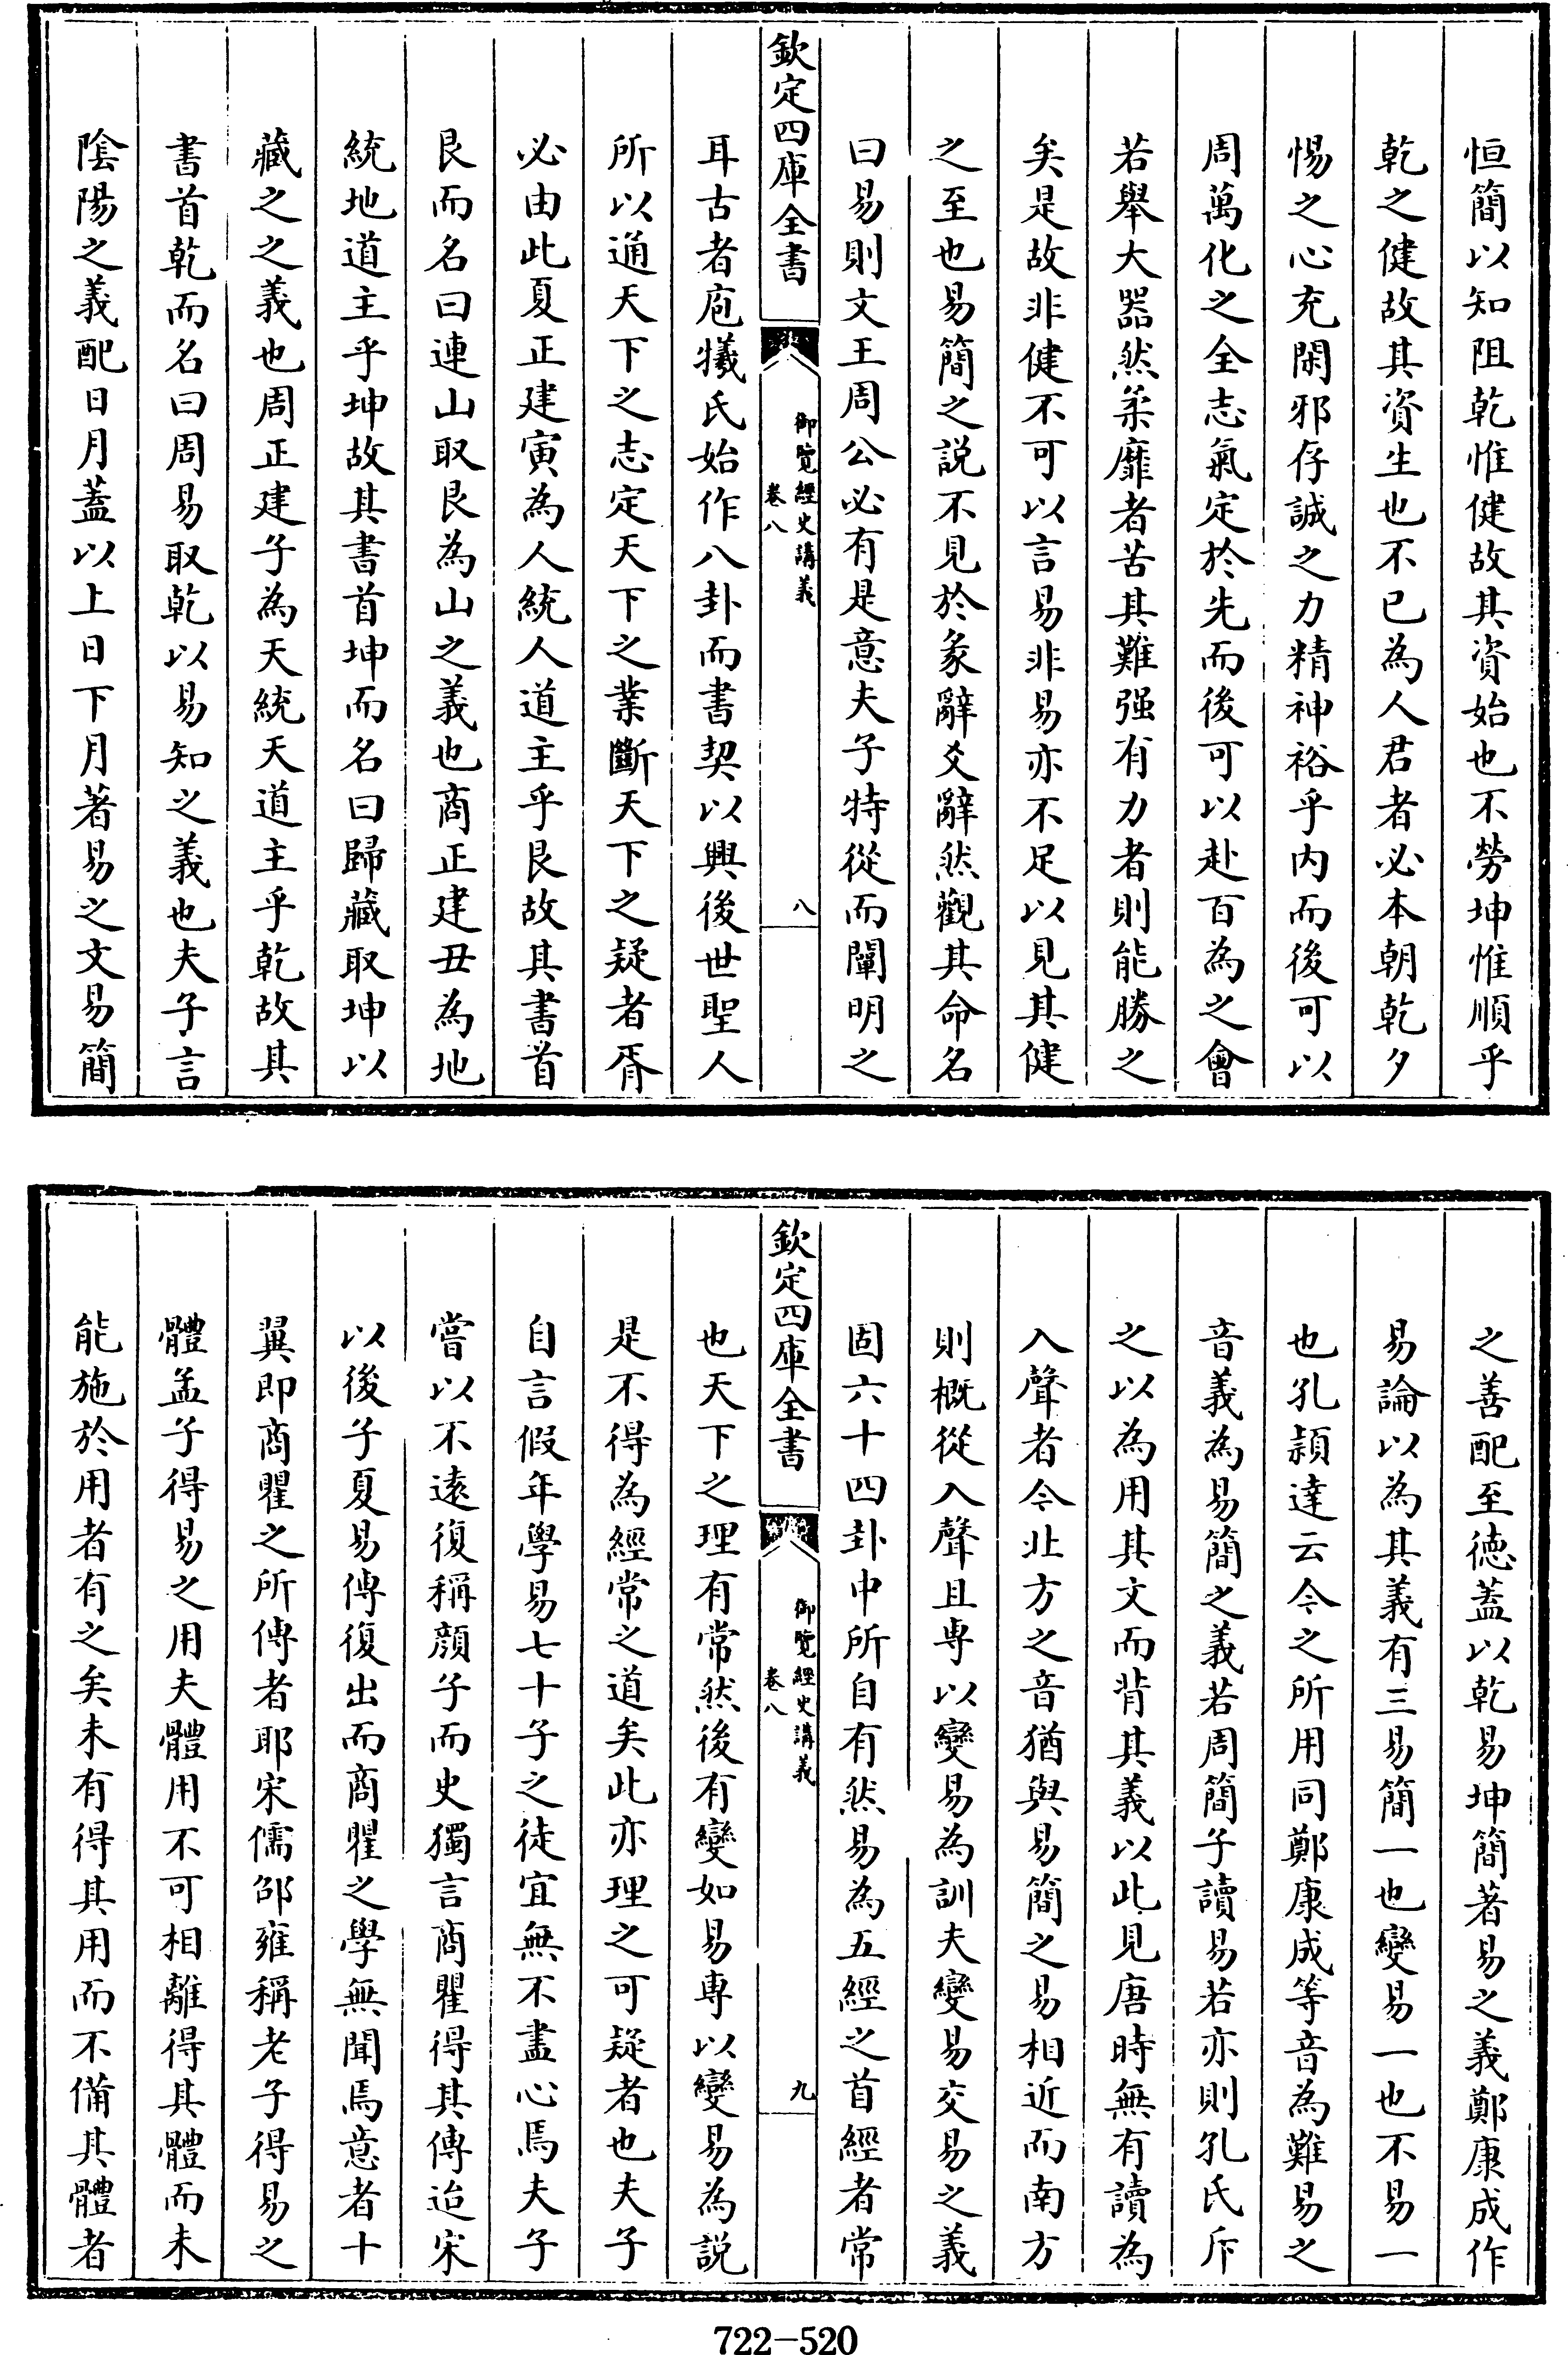 恒簡以知阻乾惟健故其資始也不勞坤惟順乎
乾之健故其資生也不已為人君者必本朝乾夕
惕之心充閑邪存誠之力精神裕乎内而後可以
周萬化之全志氣定於先而後可以赴百為之會
若舉大器然柔靡者苦其難强有力者則能勝之
矣是故非健不可以言易非易亦不足以見其健
之至也易簡之説不見於彖辭爻辭然觀其命名
曰易則文王周公必有是意夫子特從而闡明之
欽定四庫全書
御覽經史講義
卷八
八
耳古者庖犧氏始作八卦而書契以興後世聖人
所以通天下之志定天下之業斷天下之疑者胥
必由此夏正建寅為人統人道主乎艮故其書首
艮而名曰連山取艮為山之義也商正建丑為地
統地道主乎坤故其書首坤而名曰歸藏取坤以
藏之之義也周正建子為天統天道主乎乾故其
書首乾而名曰周易取乾以易知之義也夫子言
陰陽之義配日月葢以上日下月著易之文易簡
之善配至徳葢以乾易坤簡著易之義鄭康成作
易論以為其義有三易簡一也變易一也不易一
也孔頴達云今之所用同鄭康成等音為難易之
音義為易簡之義若周簡子讀易若亦則孔氏斥
之以為用其文而背其義以此見唐時無有讀為
入聲者今北方之音猶與易簡之易相近而南方
則概從入聲且専以變易為訓夫變易交易之義
固六十四卦中所自有然易為五經之首經者常
欽定四庫全書
御覽經史講義
卷八
九
也天下之理有常然後有變如易専以變易為説
是不得為經常之道矣此亦理之可疑者也夫子
自言假年學易七十子之徒宜無不盡心焉夫子
嘗以不逺復稱顔子而史獨言商瞿得其傳迨宋
以後子夏易傳復出而商瞿之學無聞焉意者十
翼即商瞿之所傳者耶宋儒邵雍稱老子得易之
體孟子得易之用夫體用不可相離得其體而未
能施於用者有之矣未有得其用而不備其體者
722－520